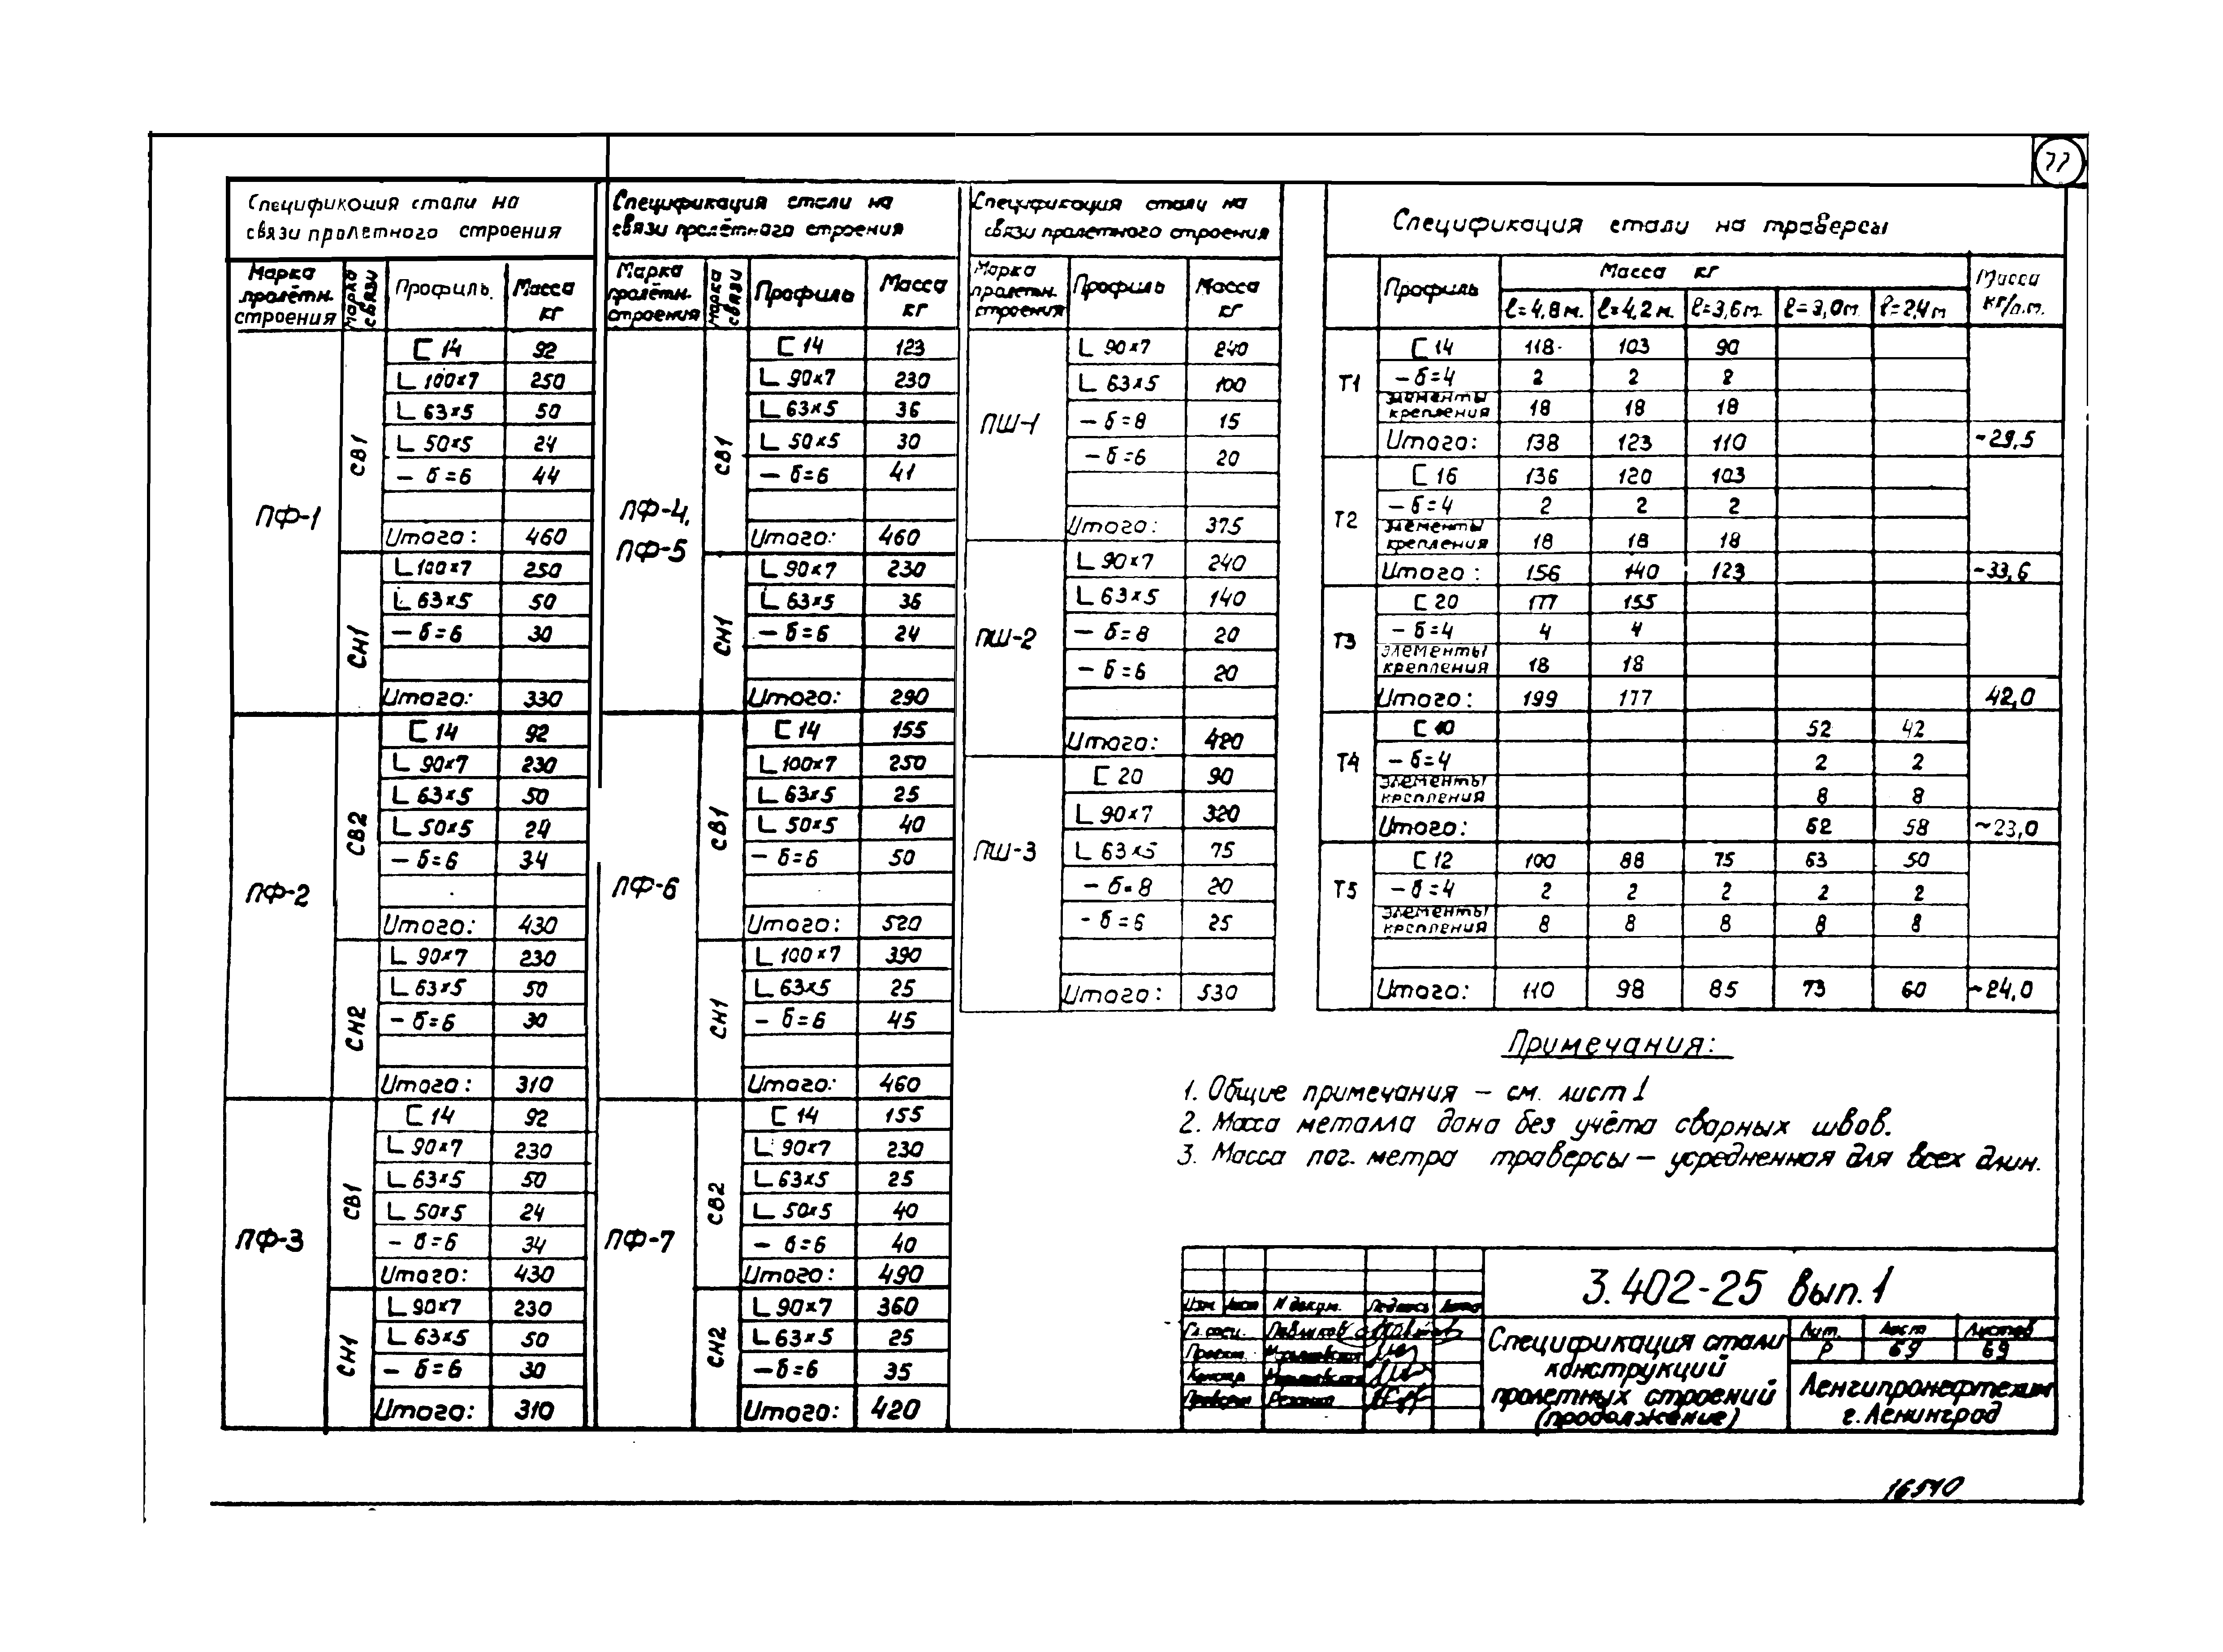 77
Спецификация стали на
связи пролетного строения
Марка пролётн. строения Марка связи Профиль Масса кг
ПФ-1 СВ1 [ 14 92
L 100×7 250
L 63×5 50
L 50×5 24
– δ=6 44
Итого: 460
СН1 L 100×7 250
L 63×5 50
– δ=6 30
Итого: 330
ПФ-2 СВ2 [ 14 92
L 90×7 230
L 63×5 50
L 50×5 24
– δ=6 34
Итого: 430
СН2 L 90×7 230
L 63×5 50
– δ=6 30
Итого: 310
ПФ-3 СВ1 [ 14 92
L 90×7 230
L 63×5 50
L 50×5 24
– δ=6 34
Итого: 430
СН1 L 90×7 230
L 63×5 50
– δ=6 30
Итого: 310
Спецификация стали на
связи пролётного строения
Марка пролётн. строения Марка связи Профиль Масса кг
ПФ-4, ПФ-5 СВ1 [ 14 123
L 90×7 230
L 63×5 36
L 50×5 30
– δ=6 41
Итого: 460
СН1 L 90×7 230
L 63×5 36
– δ=6 24
Итого: 290
ПФ-6 СВ1 [ 14 155
L 100×7 250
L 63×5 25
L 50×5 40
– δ=6 50
Итого: 520
СН1 L 100×7 390
L 63×5 25
– δ=6 45
Итого: 460
ПФ-7 СВ2 [ 14 155
L 90×7 230
L 63×5 25
L 50×5 40
– δ=6 40
Итого: 490
СН2 L 90×7 360
L 63×5 25
– δ=6 35
Итого: 420
Спецификация стали на
связи пролетного строения
Марка пролетн. строения Профиль Масса кг
ПШ-1 L 90×7 240
L 63×5 100
– δ=8 15
– δ=6 20
Итого: 375
ПШ-2 L 90×7 240
L 63×5 140
– δ=8 20
– δ=6 20
Итого: 420
ПШ-3 [ 20 90
L 90×7 320
L 63×5 75
– δ=8 20
– δ=6 25
Итого: 530
Спецификация стали на траверсы
Профиль Масса кг Масса кг/п.м.
ℓ=4,8м. ℓ=4,2м. ℓ=3,6м. ℓ=3,0м. ℓ=2,4м
Т1 [ 14 118 103 90
– δ=4 2 2 2
элементы крепления 18 18 18
Итого: 138 123 110 ~29,5
Т2 [ 16 136 120 103
– δ=4 2 2 2
элементы крепления 18 18 18
Итого: 156 140 123 ~33,6
Т3 [ 20 177 155
– δ=4 4 4
элементы крепления 18 18
Итого: 199 177 42,0
Т4 [ 10 52 42
– δ=4 2 2
элементы крепления 8 8
Итого: 62 58 ~23,0
Т5 [ 12 100 88 75 63 50
– δ=4 2 2 2 2 2
элементы крепления 8 8 8 8 8
Итого: 110 98 85 73 60 ~24,0
Примечания:
1. Общие примечания – см. лист 1
2. Масса металла дана без учёта сварных швов.
3. Масса пог. метра траверсы – усредненная для всех длин.
3.402-25 вып.1
Изм Лист N докум. Подпись Дата
Гл. спец. Павликов
Проект.
Констр.
Проверил
Спецификация стали
конструкций
пролетных строений
(продолжение)
Лит. Лист Листов
Р 69 69
Ленгипронефтехим
г. Ленинград
16540